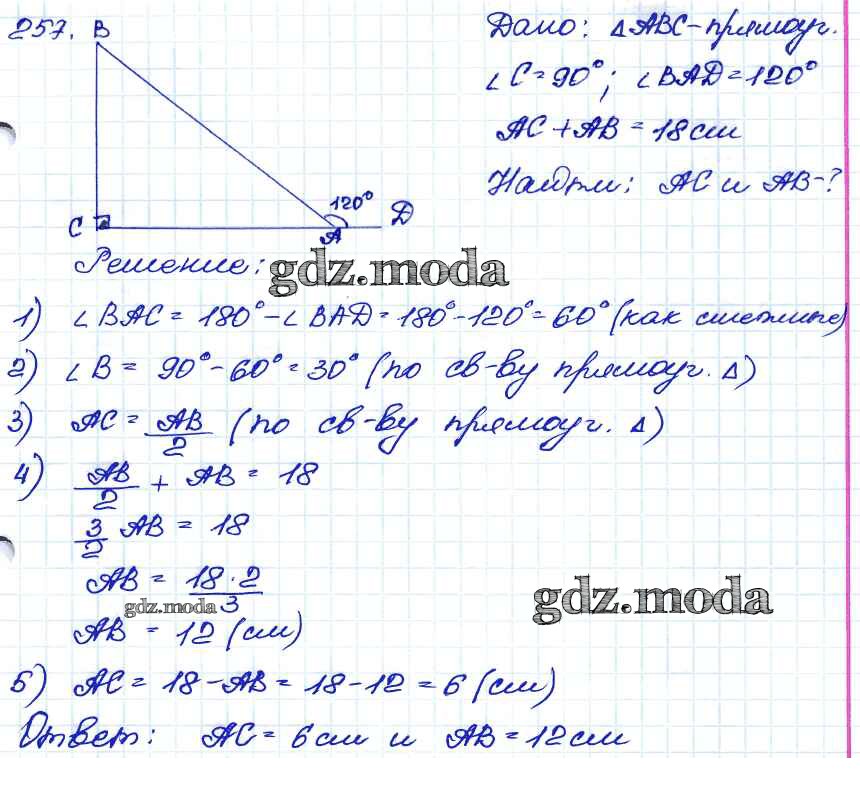 257. B
Дано: △ABC - прямоуг.
∠C = 90°; ∠BAD = 120°
AC + AB = 18 см
Найти: AC и AB - ?
120°
C A D
Решение:
gdz.moda
1) ∠BAC = 180° - ∠BAD = 180° - 120° = 60° (как смежные)
2) ∠B = 90° - 60° = 30° (по св-ву прямоуг. △)
3) AC = AB/2 (по св-ву прямоуг. △)
4) AB/2 + AB = 18
3/2 AB = 18
AB = 18·2/3
gdz.moda
gdz.moda
AB = 12 (см)
5) AC = 18 - AB = 18 - 12 = 6 (см)
Ответ: AC = 6 см и AB = 12 см